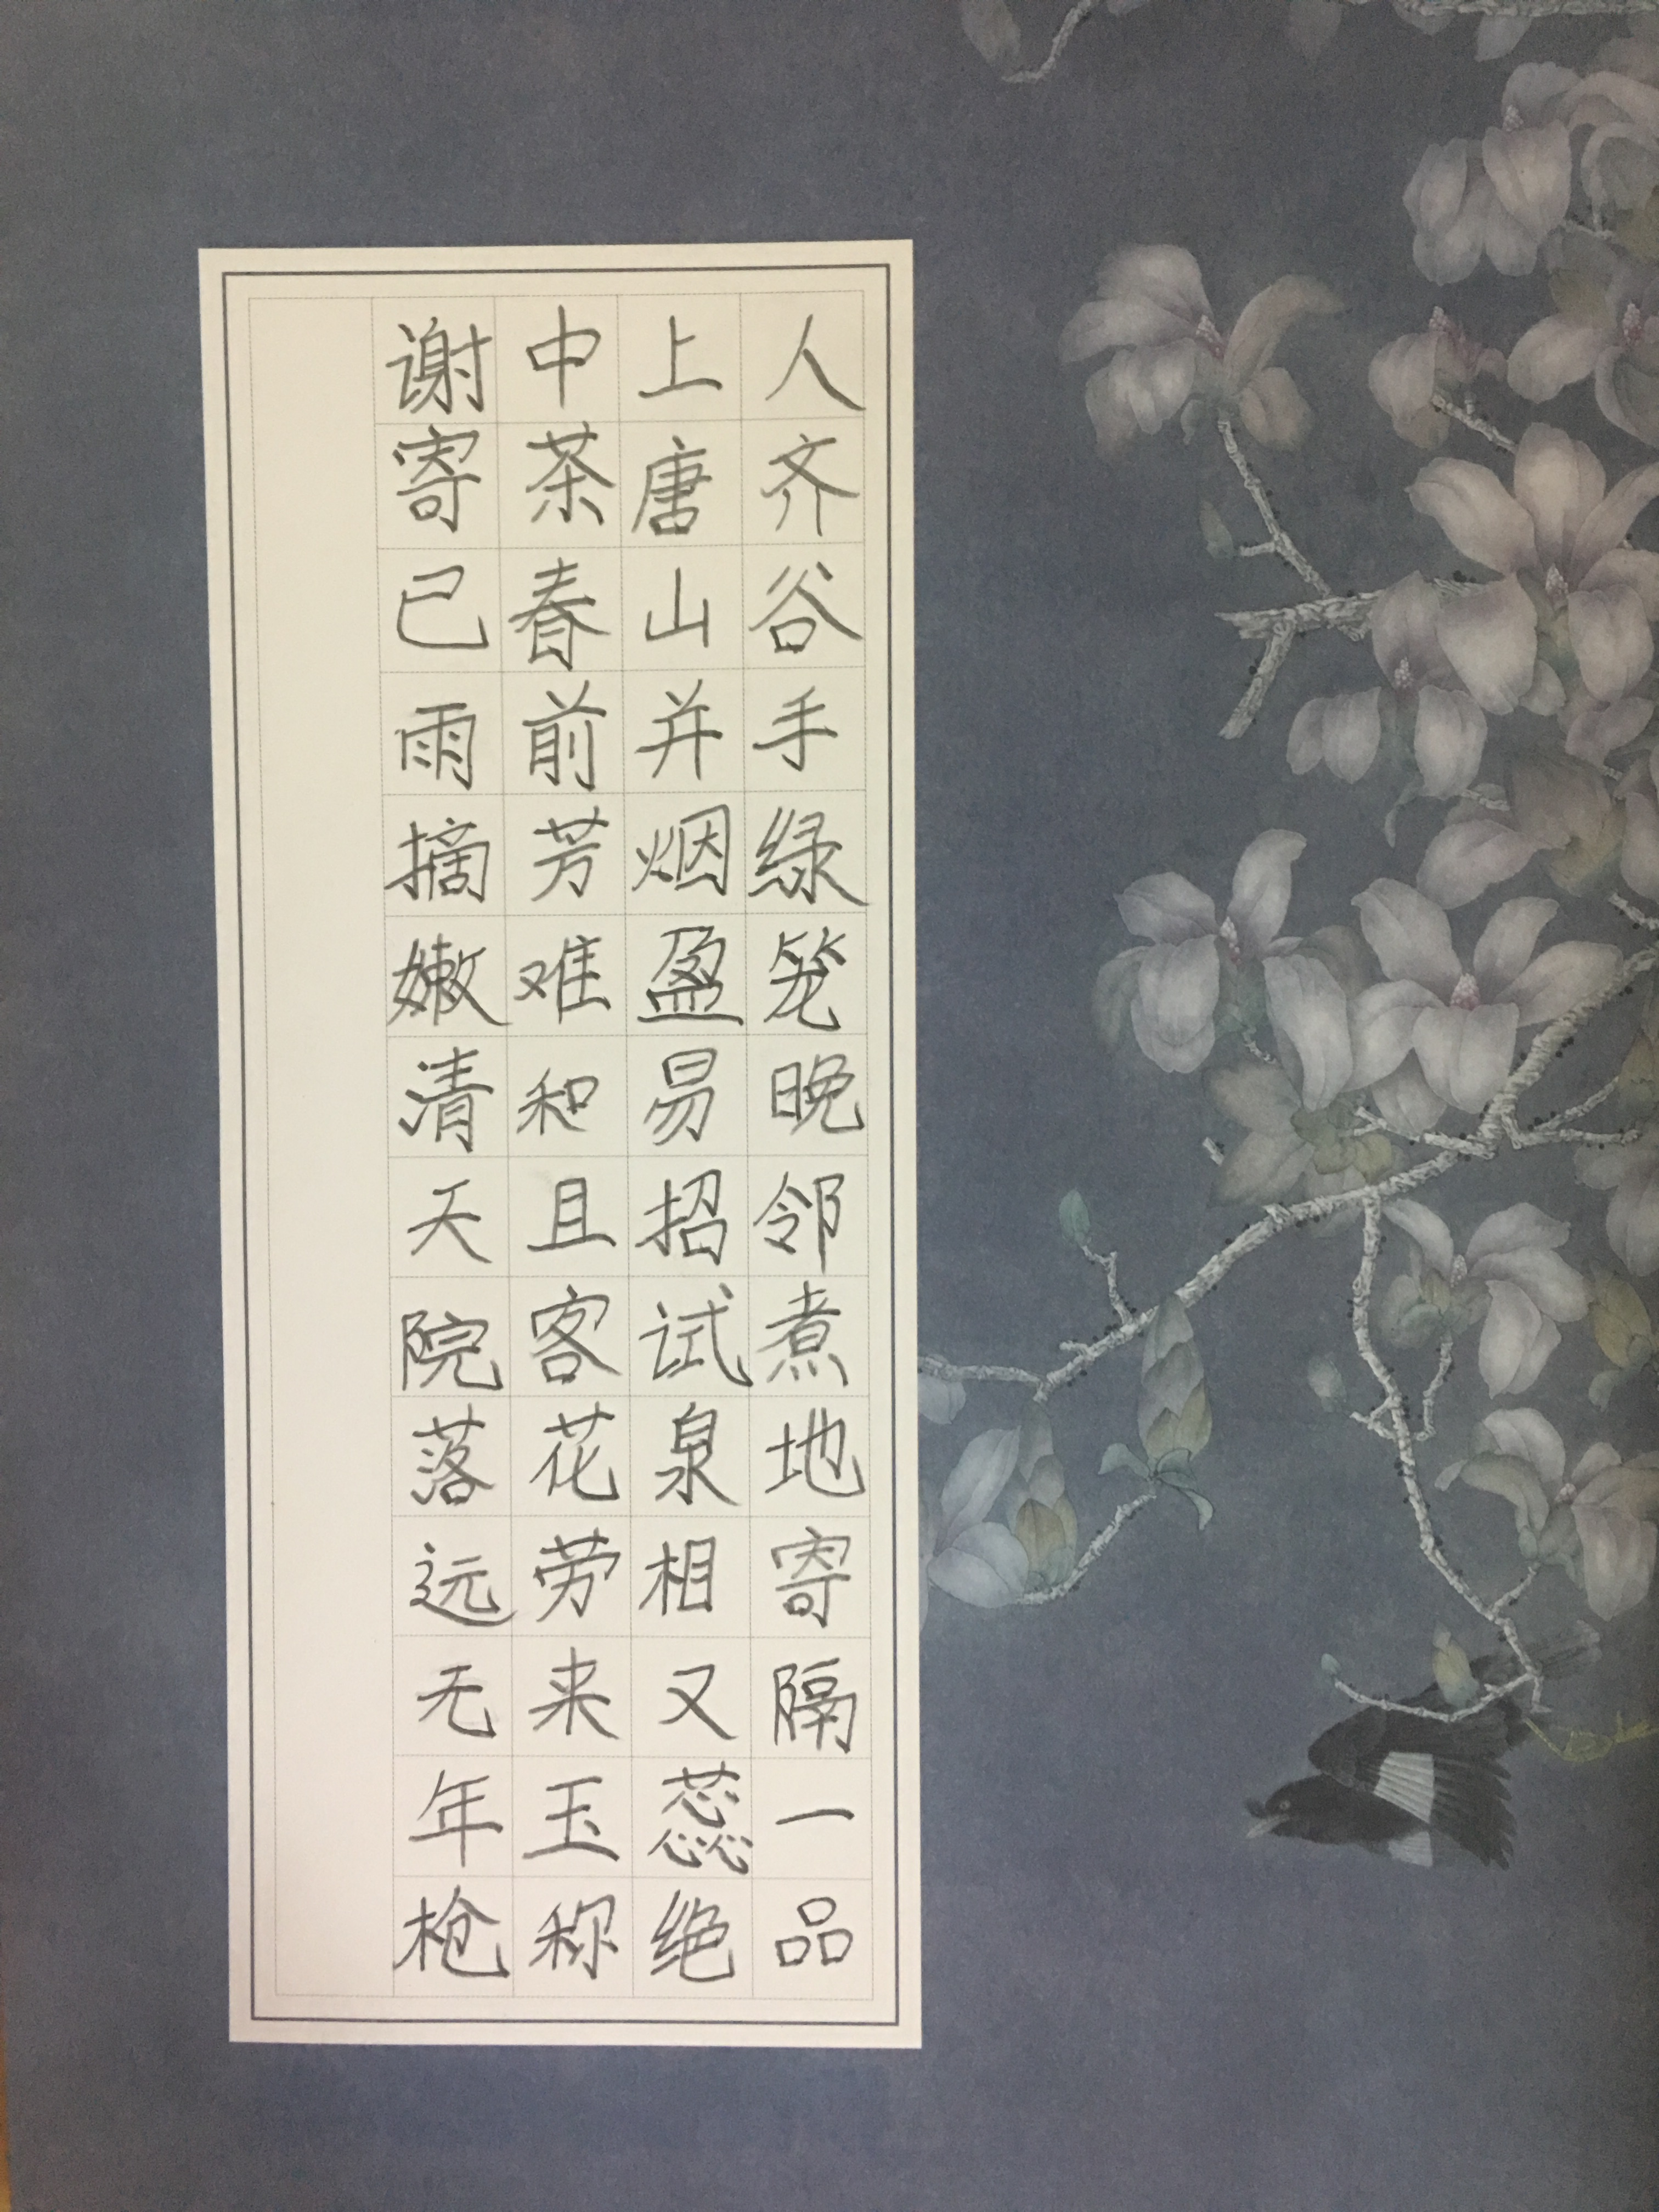 谢中上人
寄茶唐齐
己春山谷
雨前并手
摘芳烟绿
嫩难盈笼
清和易晚
天且招邻
院客试煮
落花泉地
远劳相寄
无来又隔
年玉蕊一
枪称绝品